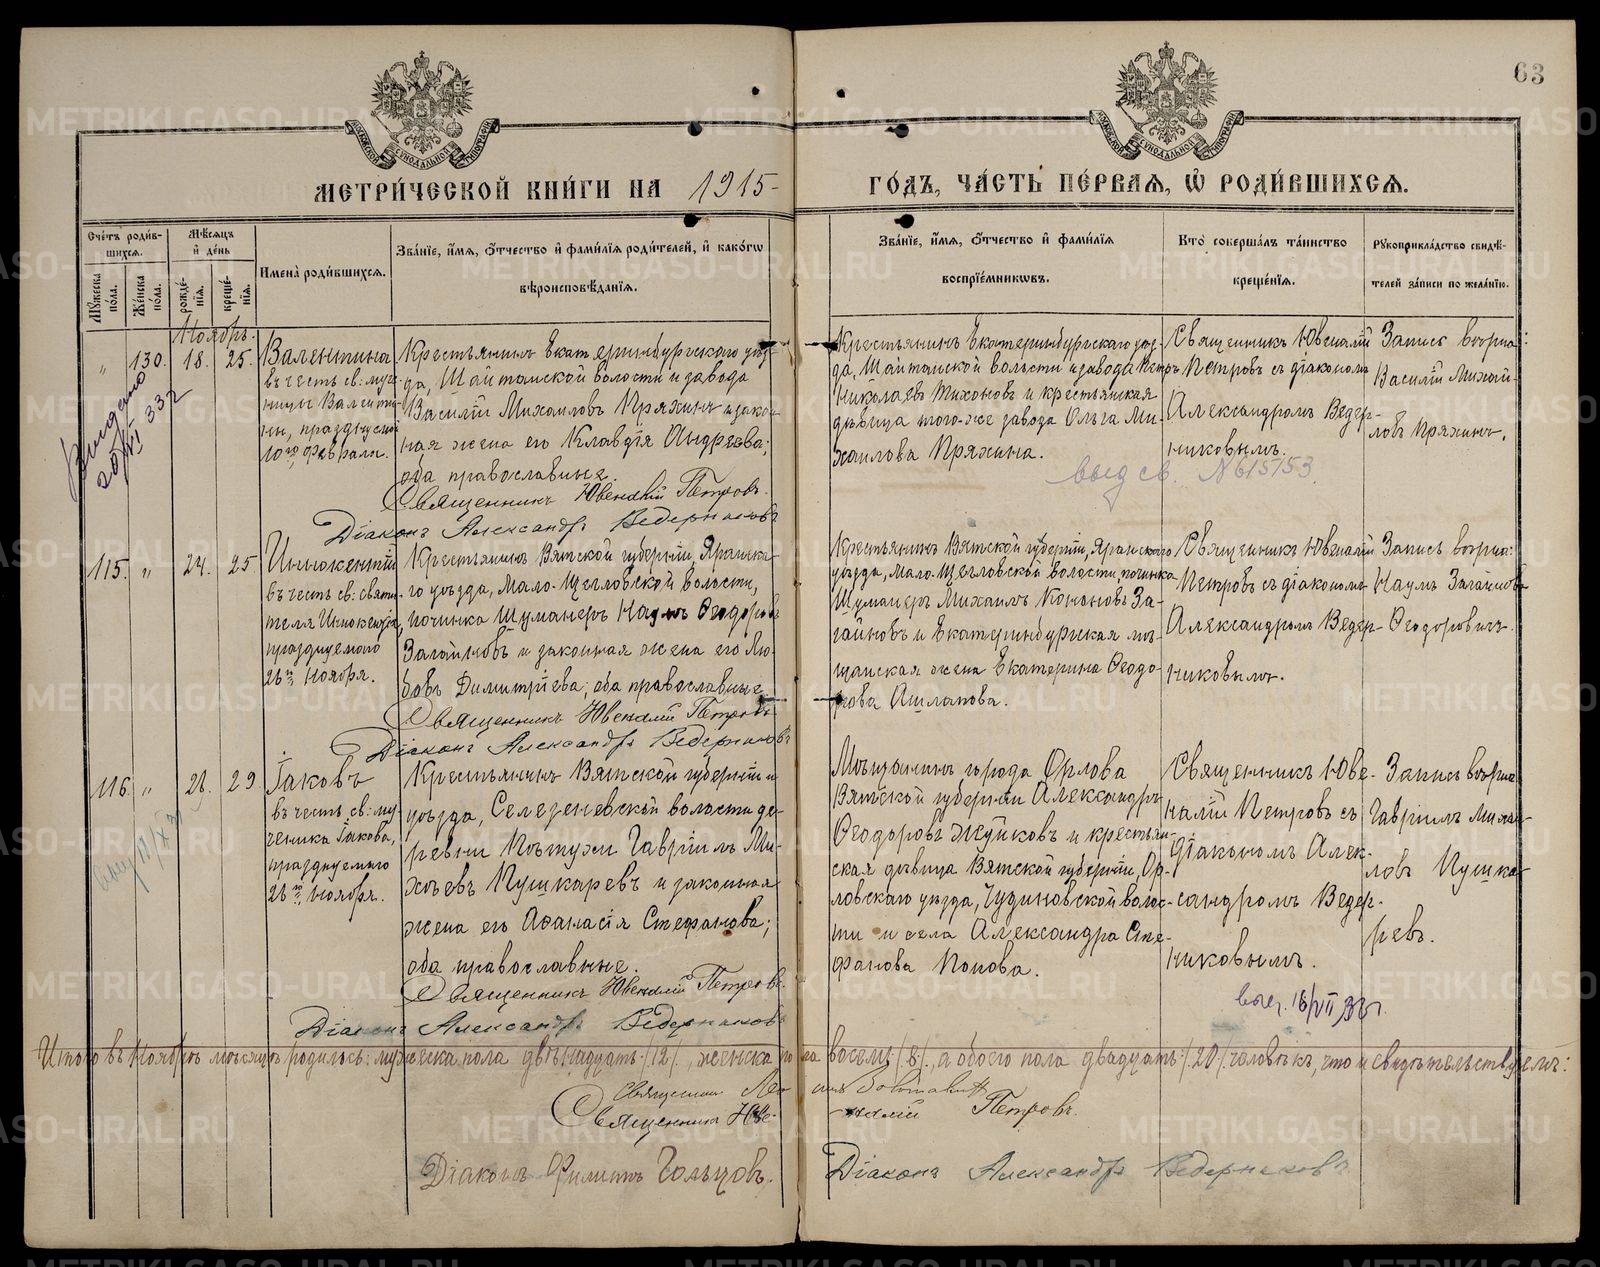 63
МОСКОВСКОЙ СѴНОДАЛЬНОЙ ТИПОГРАФІИ
МОСКОВСКОЙ СѴНОДАЛЬНОЙ ТИПОГРАФІИ
МЕТРИ́ЧЕСКОЙ КНИ́ГИ НА 1915-
ГО́ДЪ, ЧА́СТЬ ПЕ́РВАѦ, Ѡ҆ РОДИ́ВШИХСѦ.
Счетъ роди́в-
шихсѧ.
Мѣ́сѧцъ
и҆ де́нь
Мꙋжеска по́ла.
Же́нска по́ла.
рожде́-
нїѧ.
креще́-
нїѧ.
Имена̀ роди́вшихсѧ.
Зва́нїе, и҆́мѧ, ѻ҆́тчество и҆ фами́лїѧ роди́телей, и҆ како́гѡ
вѣроисповѣ́данїѧ.
Зва́нїе, и҆́мѧ, ѻ҆́тчество и҆ фами́лїѧ
воспрїе́мникѡвъ.
Кто̀ соверша́лъ та́инство
креще́нїѧ.
Рꙋкоприкла́дство свидѣ́-
телей за́писи по жела́нїю.
Ноябрь.
„ 130. 18. 25.
Валентина
въ честь св: муче-
ницы Валенти-
ны, празднуемой
10го февраля.
Крестьянинъ Екатеринбургскаго уѣз-
да, Шайтанской волости и завода
Василій Михаиловъ Пряхинъ и закон-
ная жена его Клавдія Андреева;
оба православные.
Священникъ Ювеналій Петровъ.
Діаконъ Александръ Ведерниковъ
Крестьянинъ Екатеринбургскаго уѣз-
да, Шайтанской волости и завода Петръ
Николаевъ Тихоновъ и крестьянская
дѣвица того-же завода Ольга Ми-
хаилова Пряхина.
Священникъ Ювеналій
Петровъ съ діакономъ
Александромъ Ведер-
никовымъ.
Василій Михай-
ловъ Пряхинъ.
Выдано
выд св. №615153
115. „ 24. 25
Иннокентій
въ честь св: святи-
теля Иннокентія,
празднуемаго
26го Ноября.
Крестьянинъ Вятской губерніи, Яранска-
го уѣзда, Мало-Щегловской волости,
починка Шуманеръ Наумъ Ѳеодоровъ
Загайновъ и законная жена его Лю-
бовь Димитріева; оба православные.
Священникъ Ювеналій Петровъ
Діаконъ Александръ Ведерниковъ
Крестьянинъ Вятской губерніи, Яранскаго
уѣзда, Мало-Щегловской волости, починка
Шуманеръ Михаилъ Кононовъ За-
гайновъ и Екатеринбургская мѣ-
щанская жена Екатерина Ѳеодо-
рова Ашлапова.
Священникъ Ювеналій
Петровъ съ діакономъ
Александромъ Ведер-
никовымъ.
Наумъ Загайновъ
Ѳеодоровичъ.
116. „ 28. 29
Іаковъ
въ честь св: му-
ченика Іакова,
празднуемаго
26го Ноября.
Крестьянинъ Вятской губерніи и
уѣзда, Селезеневской волости де-
ревни Пѣтухи Гавріилъ Ми-
хѣевъ Пушкаревъ и законная
жена его Аѳанасія Стефанова;
оба православные.
Священникъ Ювеналій Петровъ.
Діаконъ Александръ Ведерниковъ
Мѣщанинъ города Орлова
Вятской губерніи Александръ
Ѳеодоровъ Жуйковъ и крестьян-
ская дѣвица Вятской губерніи, Ор-
ловскаго уѣзда, Чудиновской волос-
ти и села Александра Сте-
фанова Попова.
Священникъ Юве-
налій Петровъ съ
діакономъ Алек-
сандромъ Ведер-
никовымъ.
Гавріилъ Михаи-
ловъ Пушка-
ревъ.
Итого въ Ноябрѣ мѣсяцѣ родилось: мужеска пола двѣнадцать /12/, женска пола восемь /8/, а обоего пола двадцать /20/ человѣкъ, что и свидѣтельствуемъ:
Священникъ Ювеналій Петровъ.
Діаконъ Филиппъ Гольцовъ.
Діаконъ Александръ Ведерниковъ
METRIKI.GASO-URAL.RU